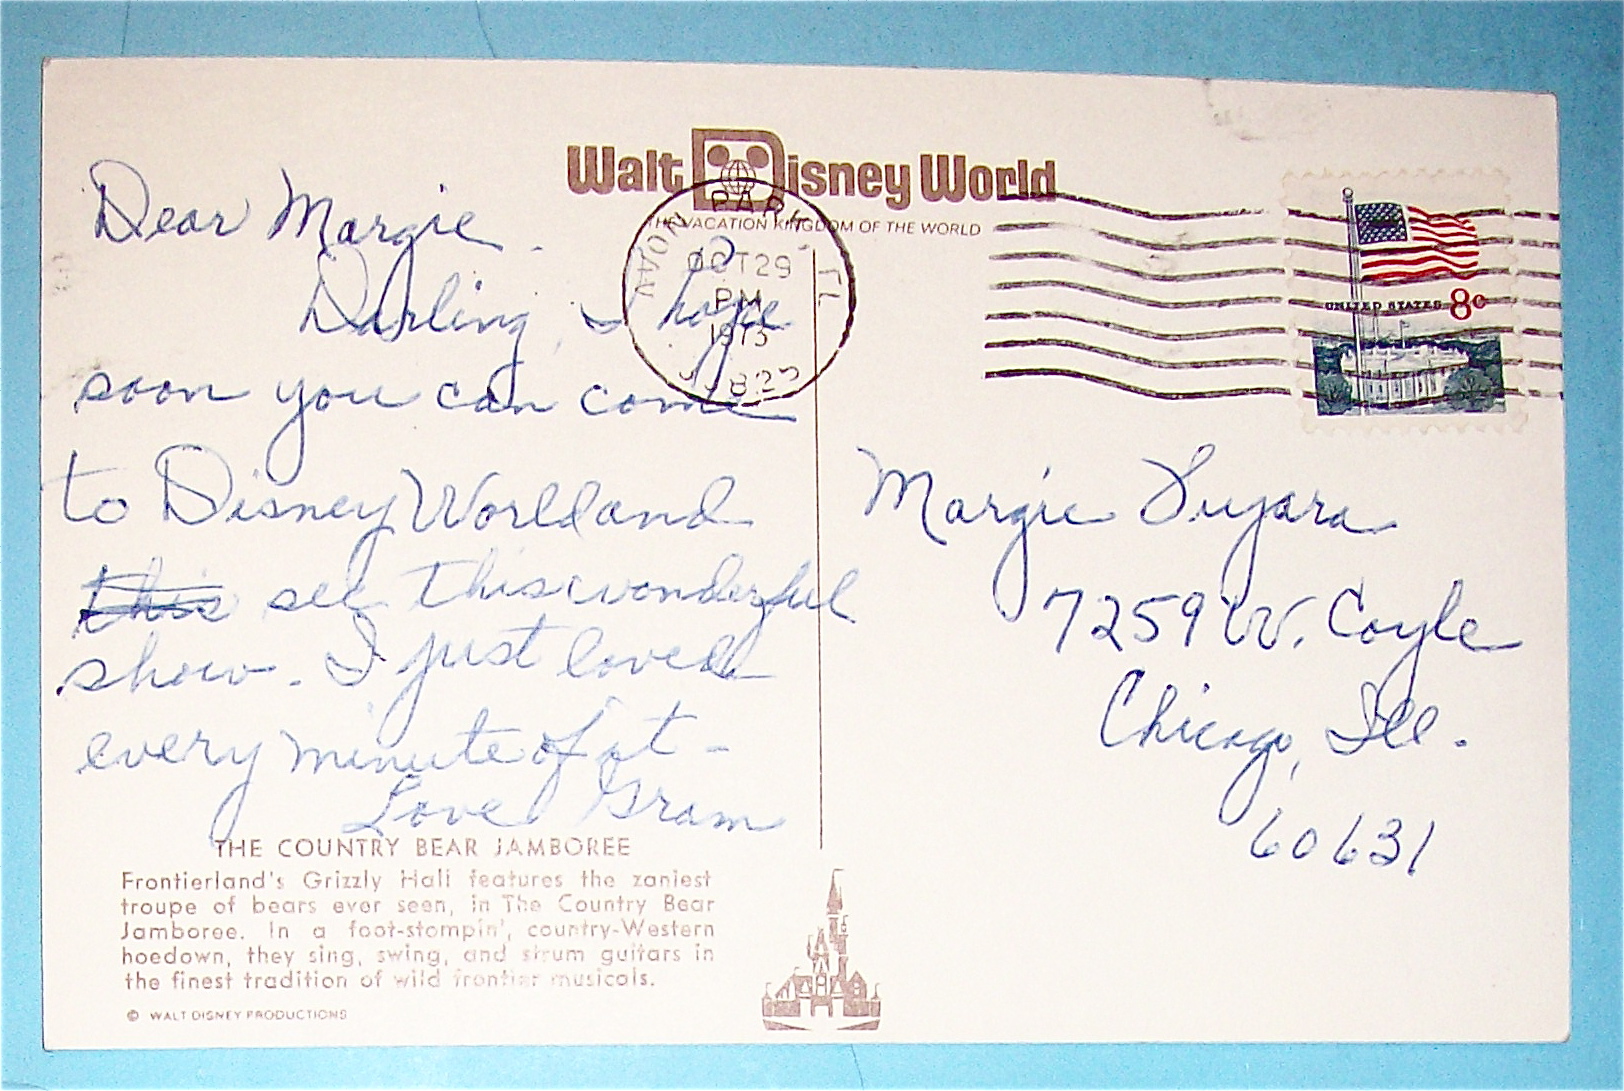 Walt Disney World
THE VACATION KINGDOM OF THE WORLD
OCT 29
PM
1973
FL
UNITED STATES 8c
Dear Margie.
Darling, I hope
soon you can come
to Disney World and
this see this wonderful
show. I just loved
every minute of it -
Love Gram
Margie
7259 W. Coyle
Chicago, Ill.
60631
THE COUNTRY BEAR JAMBOREE
Frontierland's Grizzly Hall features the zaniest
troupe of bears ever seen, in The Country Bear
Jamboree. In a foot-stompin', country-Western
hoedown, they sing, swing, and strum guitars in
the finest tradition of wild frontier musicals.
© WALT DISNEY PRODUCTIONS